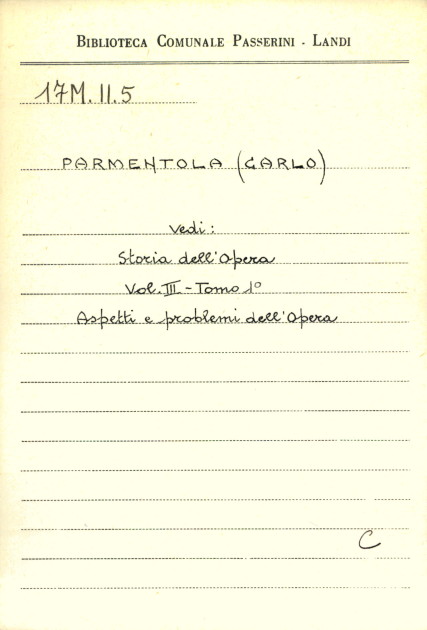 BIBLIOTECA COMUNALE PASSERINI - LANDI
17M.II.5
PARMENTOLA (CARLO)
Vedi:
Storia dell'Opera
Vol. III - Tomo 1º
Aspetti e problemi dell'Opera
C